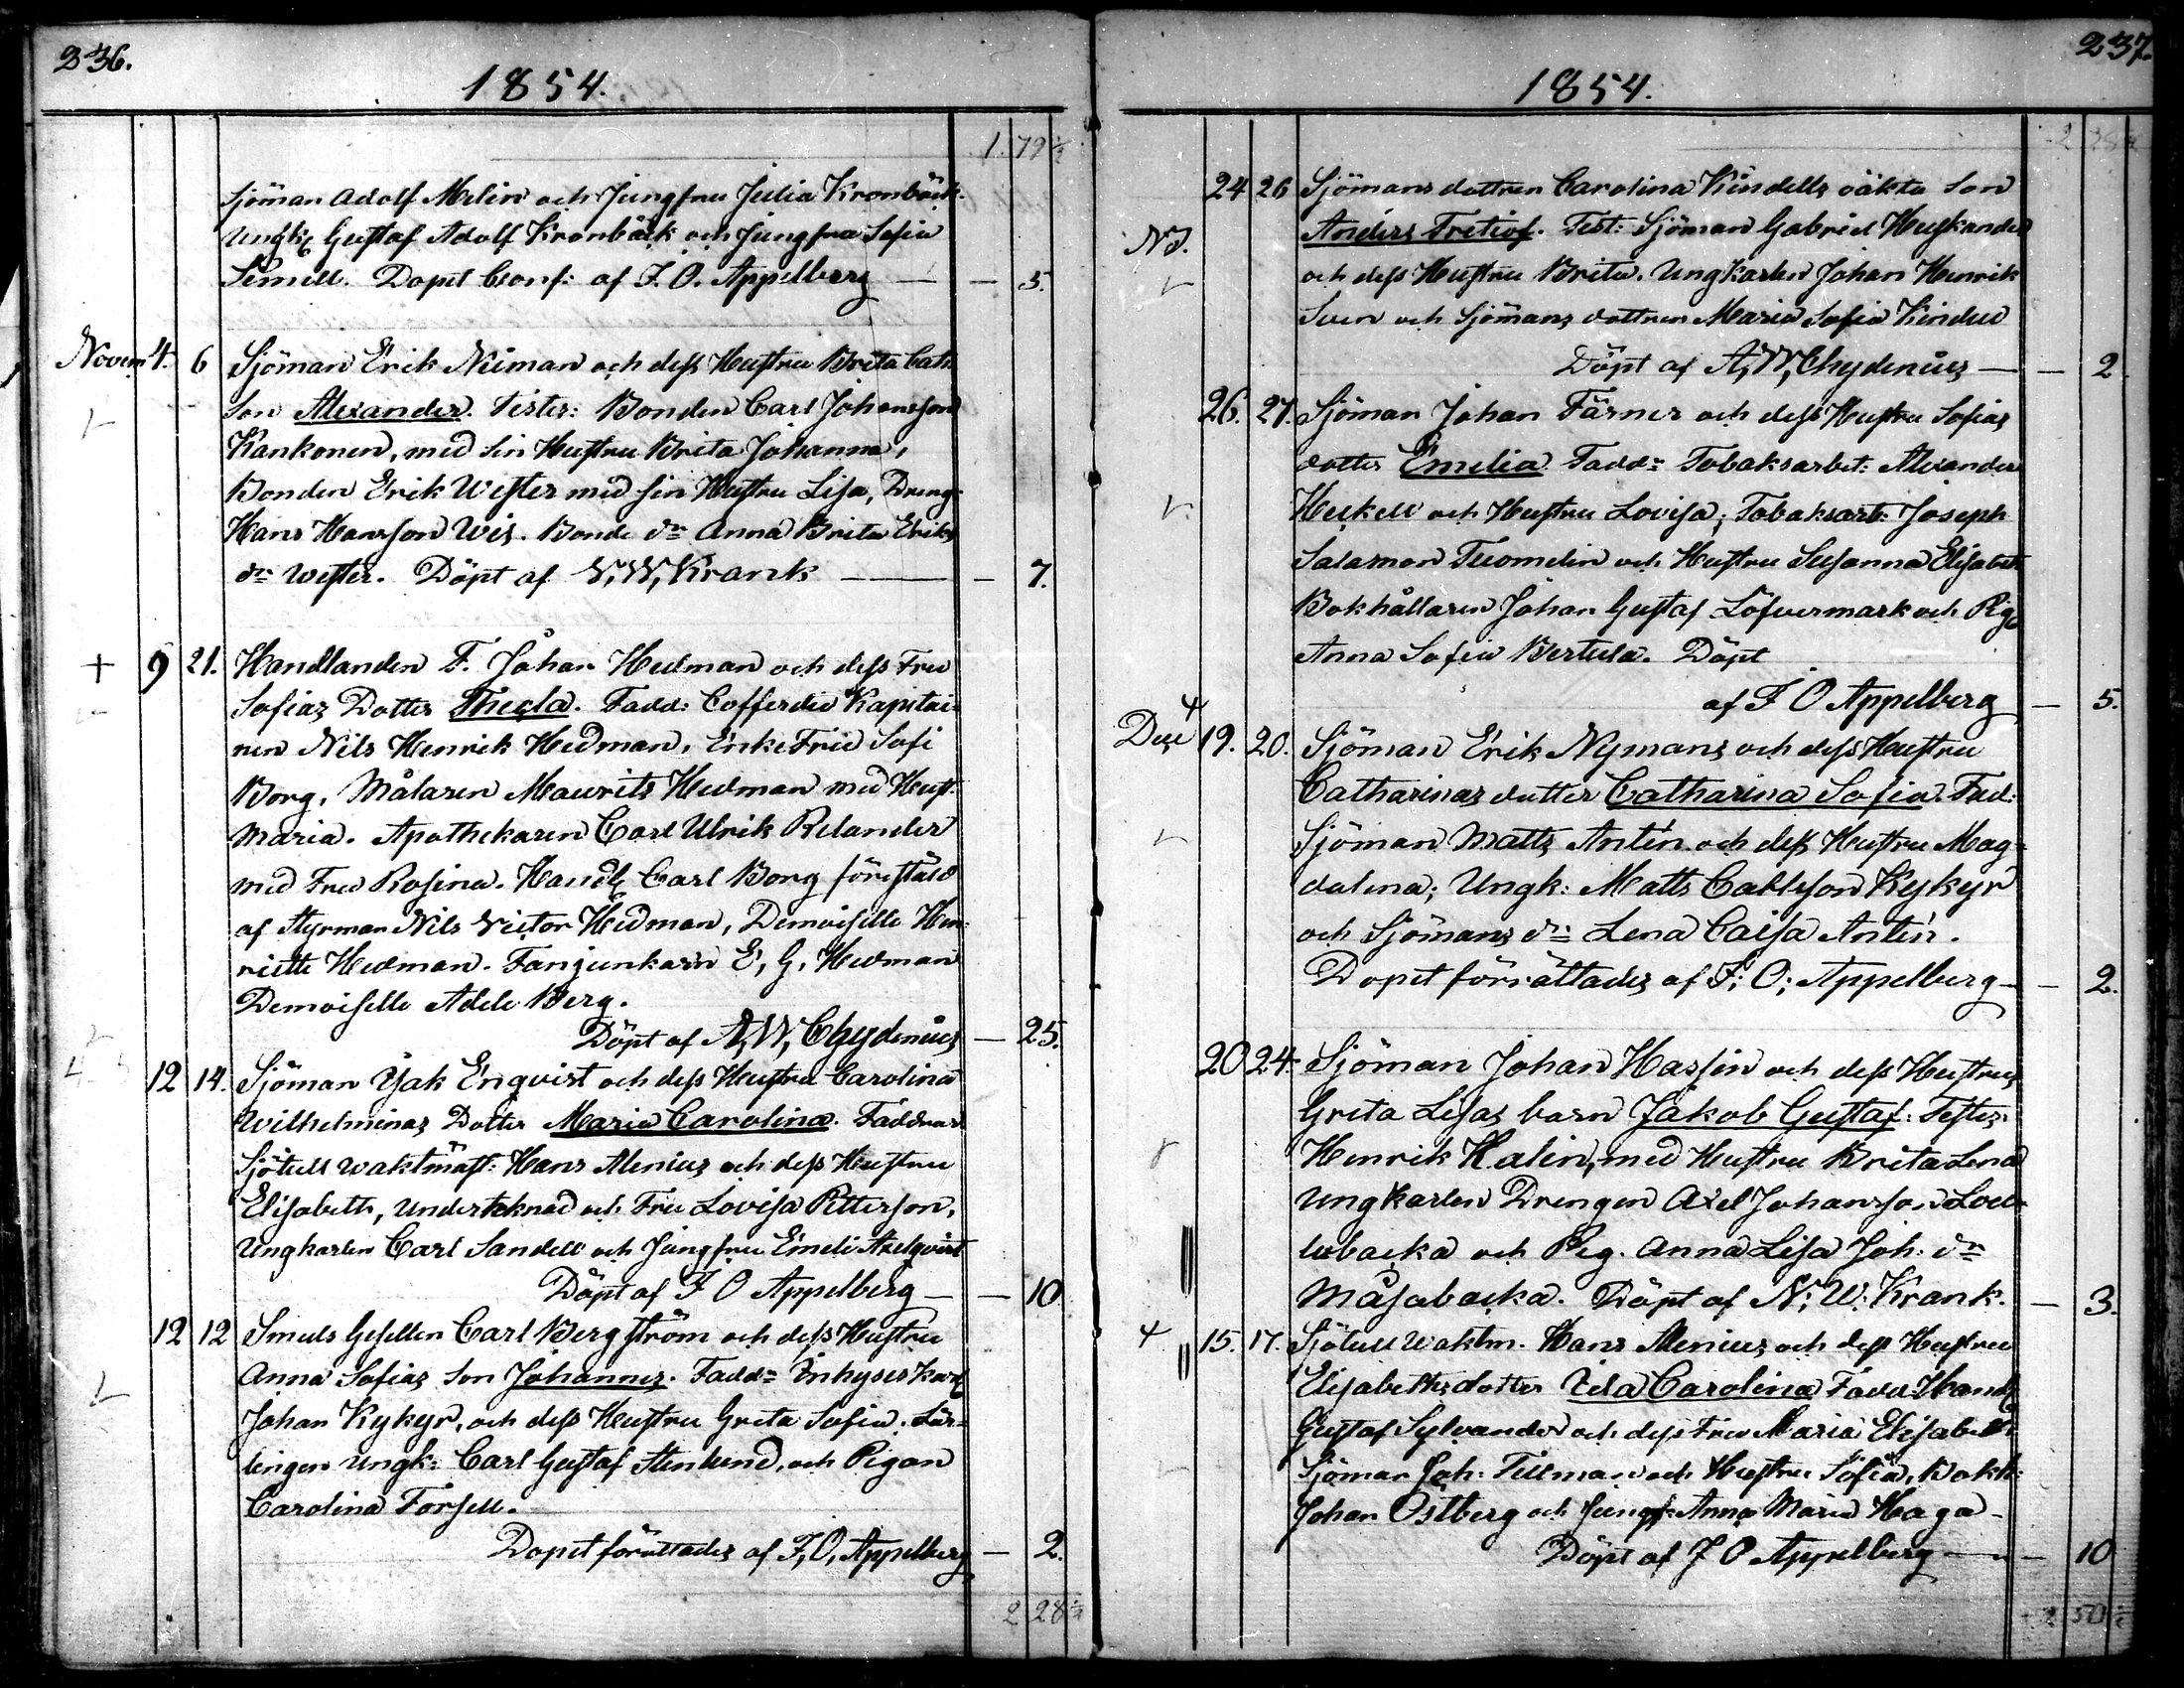 236.
1854.
1. 79 ½
Sjöman Adolf Melin och Jungfru Julia Kronbäck.
Ungk: Gustaf Adolf Kronbäck och Jungfru Sofia
Semell. Dopet Conf: af F. O. Appelberg — — 5.
Novem 4. 6 Sjöman Erik Niiman och dess Hustru Brita Cath.
Son Alexander. Tester: Bonden Carl Johansson
Kankonen, med sin Hustru Brita Johanna,
Bonden Erik Wester med sin Hustru Lisa, Dreng.
Hans Hansson Wis. Bonde dr Anna Brita Eriks
dr Wester. Döpt af V. W. Kranck — — 7.
+ 9 21. Handlanden F. Johan Hedman och dess Fru
Sofias Dotter Thecla. Fadd: Cofferdie Kapitai-
nen Nils Henrik Hedman, Enke Fru Sofi
Borg, Målaren Maurits Hedman med Hust.
Maria. Apothekaren Carl Ulrik Relander
med Fru Rosina. Handl Carl Borg föreståld
af Styrman Nils Victor Hedman, Demoiselle Hen-
riette Hedman. Fanjunkarn E, G, Hedman
Demoiselle Adele Berg.
Döpt af A, W, Chydenius — 25.
12 14. Sjöman Isak Enqvist och dess Hustru Carolina
Wilhelminas Dotter Maria Carolina. Faddrar
Sjötull waktmäst: Hans Alenius och dess Hustru
Elisabeth, Underteknad och Fru Lovisa Petterson,
Ungkarlen Carl Sandell och Jungfru Emeli Axelqvist
Döpt af F O Appelberg — — 10
12 12 Smeds Gesellen Carl Bergström och dess Hustru
Anna Sofias Son Johannes. Fadd: Inhyses Karl
Johan Kykyr, och dess Hustru Greta Sofia. Lär-
lingen Ungk: Carl Gustaf Stenlund, och Pigan
Carolina Forsell.
Dopet förättades af F, O, Appelberg — 2.
2 28 ½
237.
1854.
2 28 ½
24 26 Sjömans dottren Carolina Kindells oäkta Son
Anders Fretiof. Test: Sjöman Gabriel Heiskander
Nd.
och dess Hustru Brita. Ungkarlen Johan Henrik
Sven och Sjömans dottren Maria Sofia Kindell
Döpt af A, W, Chydenius — — 2
26. 27. Sjöman Johan Färner och dess Hustru Sofias
dotter Emelia Fadd: Tobaksarbet: Alexander
Heikell och Hustru Lovisa; Tobaksarb: Joseph
Salamon Tuomelin och Hustru Susanna Elisabeth
Bokhållaren Johan Gustaf Löfvermark och Pig.
Anna Sofia Bertula. Döpt
af F O Appelberg — 5.
Dece 19. 20. Sjöman Erik Nymans och dess Hustru
Catharinas dotter Catharina Sofia. Fad:
Sjöman Matts Antén och dess Hustru Mag-
dalena; Ungk: Matts Carlsson Kykyr
och Sjömans dr Lena Caisa Antén.
Dopet förrättades af F; O; Appelberg — — 2.
20 24. Sjöman Johan Hassin och dess Hustrus
Greta Lisas barn Jakob Gustaf: Tester.
Henrik Halin, med Hustru Brita Lena
Ungkarlen Drengen Axel Johansson
och Pig. Anna Lisa Joh: dr
Måsabacka. Döpt af N; W: Krank. — 3.
+ 15. 17. Sjötull waktm. Hans Alenius och dess Hustru
Elisabeths dotter Ida Carolina Fadd: Handl
Gustaf Sylvander och dess Fru Maria Elisabeth
Sjöman Joh: Tillman och Hustru Sofia, Bokh:
Johan Östberg och Jungf: Anna Maria Haga.
Döpt af F O Appelberg — — 10
2 50 ½